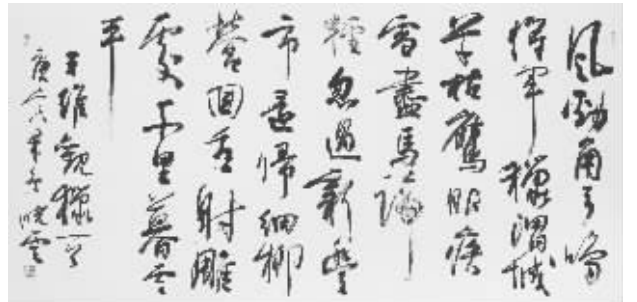 風勁角弓鳴
將軍獵渭城
草枯鷹眼疾
雪盡馬蹄
輕忽過新豐
市還歸細柳
營回看射雕
處千里暮雲
平
王維觀獵一首
庚年冬曉雲